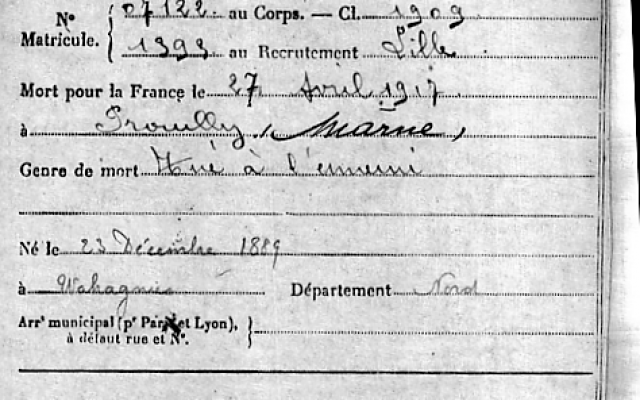 N° Matricule. { 07122 au Corps. — Cl. 1909
1393 au Recrutement Lille
Mort pour la France le 27 Avril 1917
à Prouilly (Marne)
Genre de mort Tué à l'ennemi
Né le 23 Décembre 1889
à Wahagnies Département Nord
Arrt municipal (pr Paris et Lyon),
à défaut rue et N°.